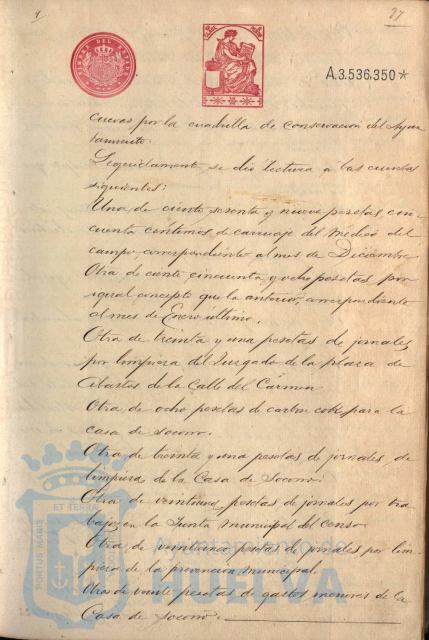 37
A.3.536,350*
cuevas por la cuadrilla de conservación del Ayun
tamiento.
Seguidamente se dió lectura á las cuentas
siguientes:
Una de ciento sesenta y nueve pesetas, cin
cuenta centimos de carruaje del medico del
campo, correspondiente al mes de Diciembre
Otra de ciento cincuenta y ocho pesetas por
igual concepto que la anterior, correspondiente
al mes de Enero ultimo.
Otra de treinta y una pesetas de jornales
por limpieza del Juzgado de la plaza de
Abastos de la Calle del Carmen
Otra de ocho pesetas de carbon cok para la
casa de socorro.
Otra de treinta y una pesetas de jornales de
limpieza de la Casa de Socorro.
Otra de veintiuna pesetas de jornales por tra
bajos en la Junta municipal del censo
Otra de pesetas de jornales por lim
pieza de la prevencion municipal.
Otra de veinte pesetas de gastos menores de la
Casa de Socorro.
PORTUS MARIS ET TERRAE
Ayuntamiento de
HUELVA